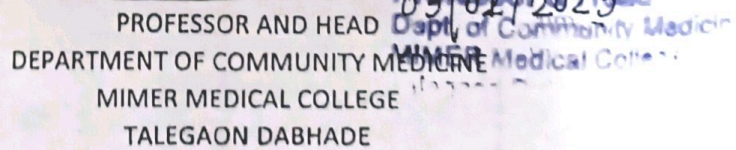 PROFESSOR AND HEAD Dept. of Community Medicin
DEPARTMENT OF COMMUNITY MEDICINE MIMER Medical Colle
MIMER MEDICAL COLLEGE
TALEGAON DABHADE